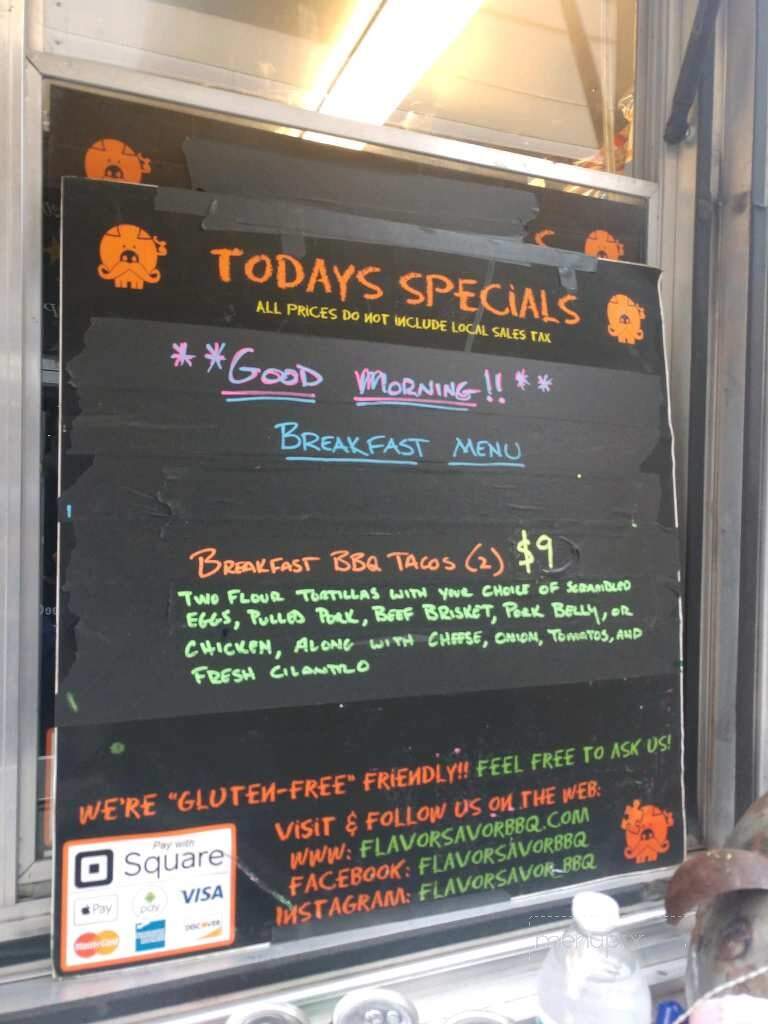 TODAYS SPECiALS
ALL PRICES DO NOT INCLUDE LOCAL SALES TAX
**GOOD MORNING!!**
BREAKFAST MENU
BREAKFAST BBQ TACOS (2) $9
TWO FLOUR TORTILLAS WITH YOUR CHOICE OF SCRAMBLED
EGGS, PULLED PORK, BEEF BRISKET, PORK BELLY, OR
CHICKEN, ALONG WITH CHEESE, ONION, TOMATOS, AND
FRESH CILANTRO
WE'RE "GLUTEN-FREE" FRiENDLY!! FEEL FREE TO ASK US!
ViSiT & FOLLOW US ON THE WEB:
WWW: FLAVORSAVORBBQ.COM
FACEBOOK: FLAVORSAVORBBQ
INSTAGRAM: FLAVORSAVOR_BBQ
Pay with
Square
Pay
pay
VISA
MasterCard
AMERICAN EXPRESS
DISCOVER